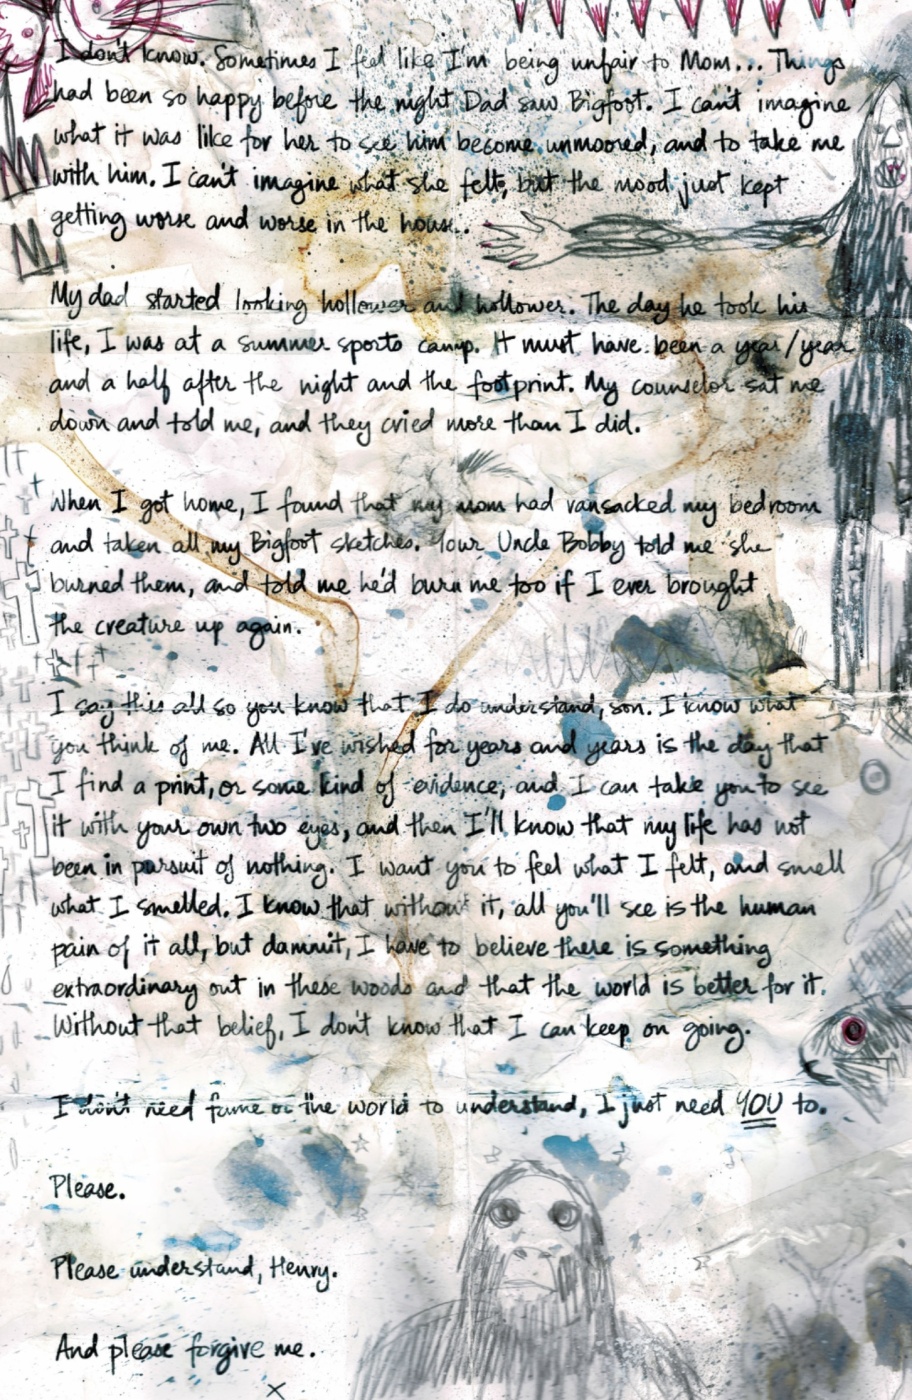 I don't know. Sometimes I feel like I'm being unfair to Mom... Things
had been so happy before the night Dad saw Bigfoot. I can't imagine
what it was like for her to see him become unmoored, and to take me
with him. I can't imagine what she felt, but the mood just kept
getting worse and worse in the house..
My dad started looking hollower and hollower. The day he took his
life, I was at a summer sports camp. It must have been a year/year
and a half after the night and the footprint. My counselor sat me
down and told me, and they cried more than I did.
When I got home, I found that my mom had ransacked my bedroom
and taken all my Bigfoot sketches. Your Uncle Bobby told me she
burned them, and told me he'd burn me too if I ever brought
the creature up again.
I say this all so you know that I do understand, son. I know what
you think of me. All I've wished for years and years is the day that
I find a print, or some kind of evidence, and I can take you to see
it with your own two eyes, and then I'll know that my life has not
been in pursuit of nothing. I want you to feel what I felt, and smell
what I smelled. I know that without it, all you'll see is the human
pain of it all, but damnit, I have to believe there is something
extraordinary out in these woods and that the world is better for it.
Without that belief, I don't know that I can keep on going.
I don't need fame or the world to understand, I just need YOU to.
Please.
Please understand, Henry.
And please forgive me.